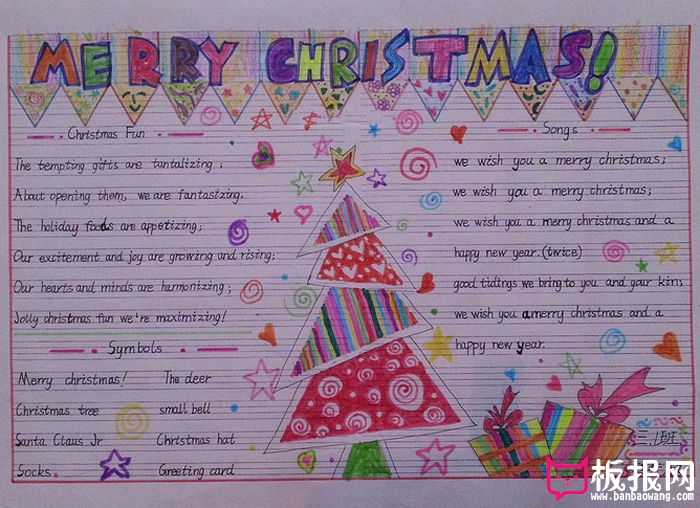 MERRY CHRISTMAS!
Christmas Fun
The tempting gifts are tantalizing;
About opening them, we are fantasizing.
The holiday foods are appetizing;
Our excitement and joy are growing and rising;
Our hearts and minds are harmonizing;
Jolly christmas fun we're maximizing!
Symbols
Merry christmas! The deer
Christmas tree small bell
Santa Claus Jr Christmas hat
Socks Greeting card
Songs
we wish you a merry christmas;
we wish you a merry christmas;
we wish you a merry christmas and a
happy new year.(twice)
good tidings we bring to you and your kin;
we wish you a merry christmas and a
happy new year.
三.1班
板报网
www.banbaowang.com